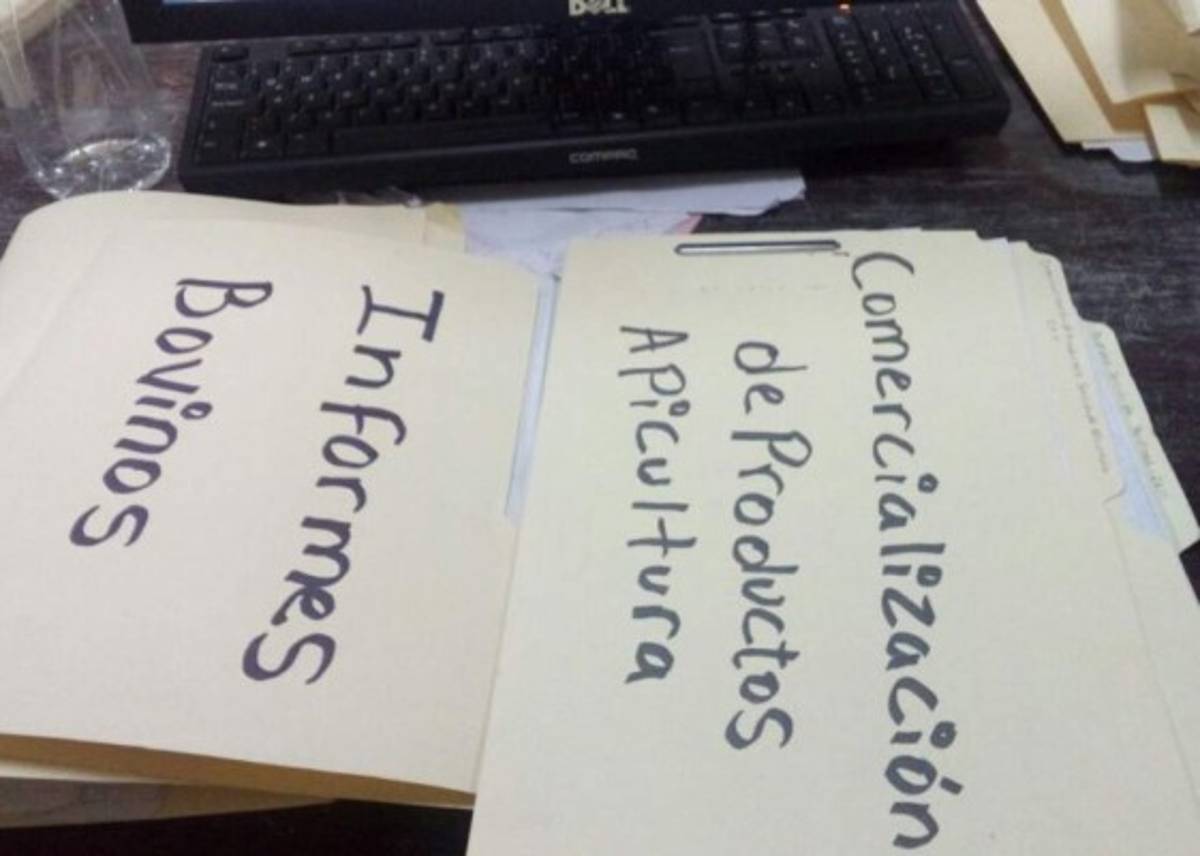 DELL
COMPAQ
Informes
Bovinos
Comercialización
de Productos
Apicultura